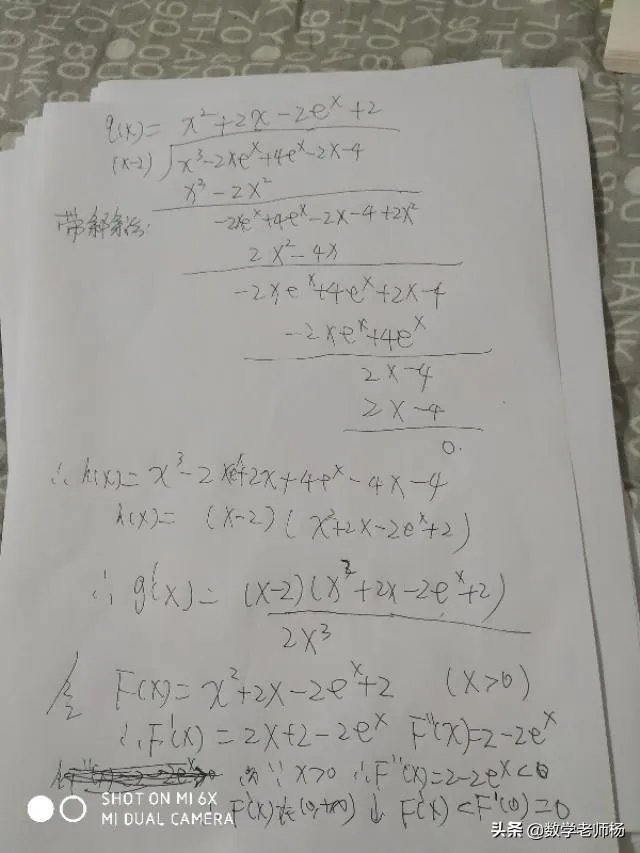 q(x)= x²+2x-2eˣ+2
(x-2) x³-2xeˣ+4eˣ-2x-4
x³-2x²
-2xeˣ+4eˣ-2x-4+2x²
带
2x²-4x
-2xeˣ+4eˣ+2x-4
-2xeˣ+4eˣ
2x-4
2x-4
0.
∴h(x)= x³-2xeˣ+2x+4eˣ-4x-4
h(x)= (x-2)(x²+2x-2eˣ+2)
∴g'(x)= (x-2)(x²+2x-2eˣ+2)
2x³
令 F(x)=x²+2x-2eˣ+2 (x>0)
∴F'(x)=2x+2-2eˣ F''(x)=2-2eˣ
∵x>0 ∴F''(x)=2-2eˣ<0
F'(x)在(0,+∞)↓ F'(x)<F'(0)=0
SHOT ON MI 6X
MI DUAL CAMERA
头条 @数学老师杨
THANK YOU
60 70 80 90